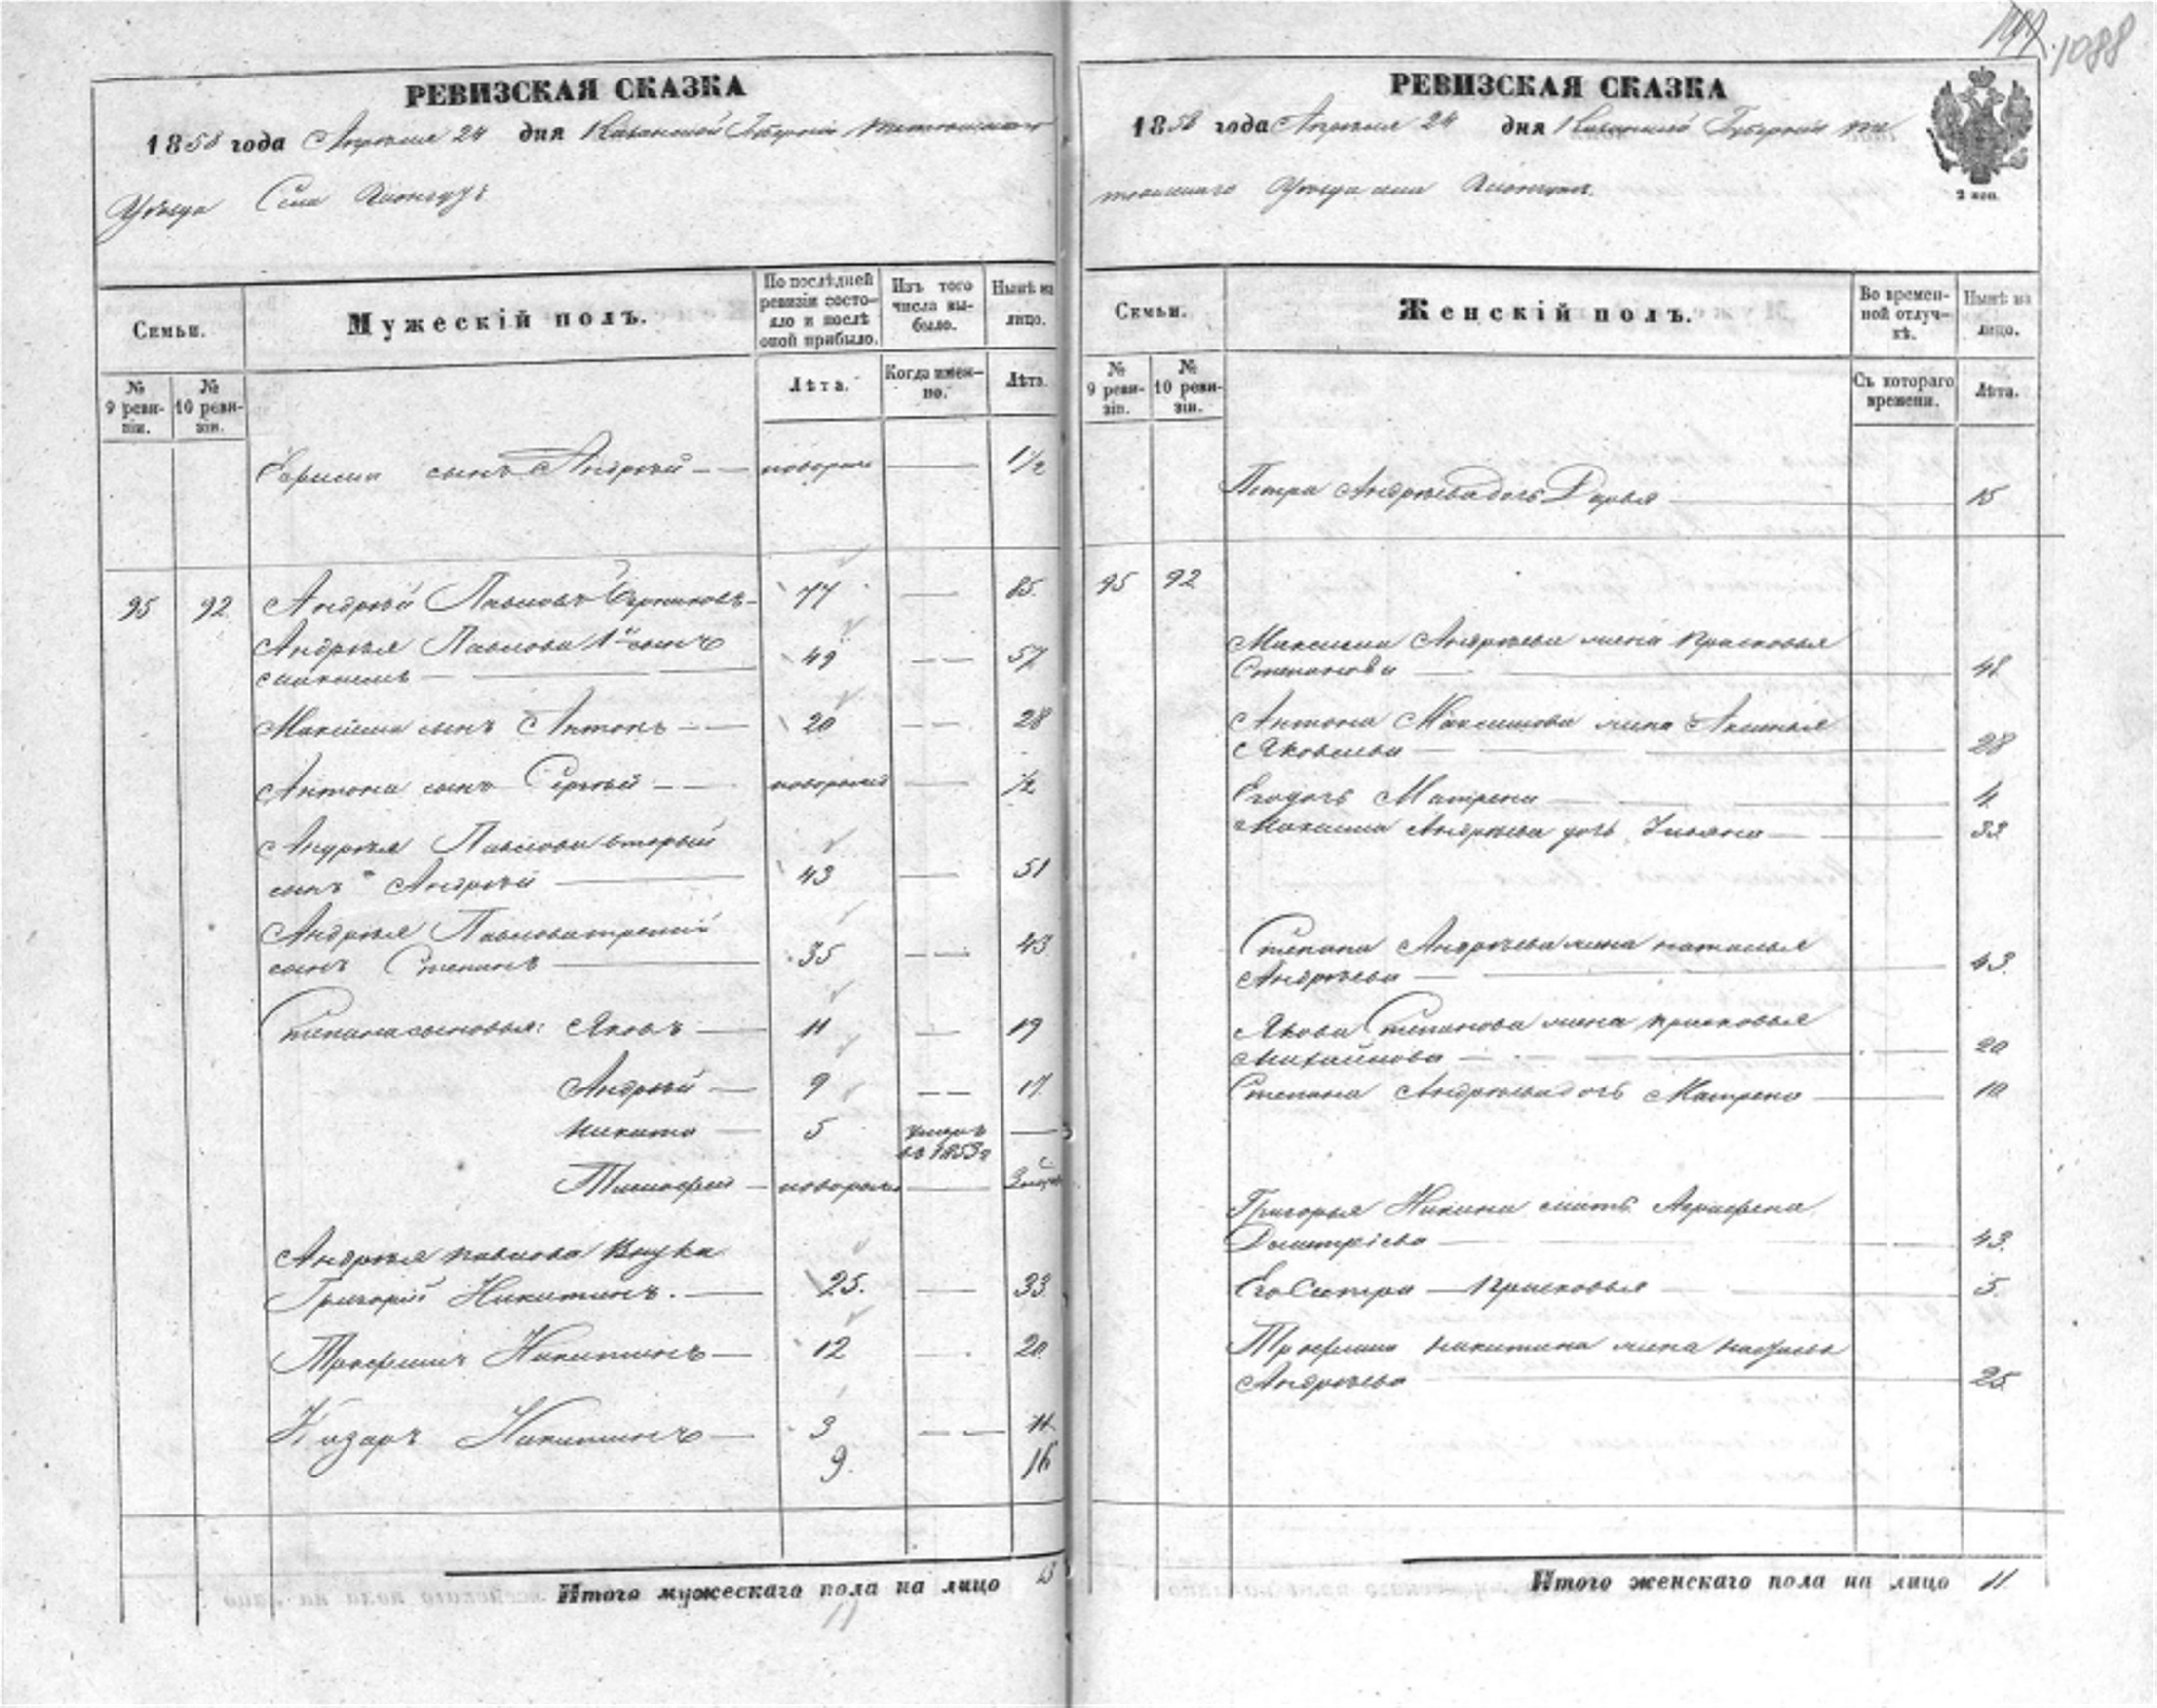 1088
РЕВИЗСКАЯ СКАЗКА
1858 года Апреля 24 дня Казанской Губернiи Тетюшскаго
Уѣзда Села
Семьи.
Мужескiй полъ.
По послѣдней ревизiи состояло и послѣ оной прибыло.
Изъ того числа выбыло.
Нынѣ на лицо.
№ 9 ревизiи.
№ 10 ревизiи.
Лѣта.
Когда именно.
Лѣта.
Ефима сынъ Андрей — — новорож — 1½
95 92 Андрей Павловъ — 77 — 85.
Андрея Павлова 1й сынъ
Максимъ — 49 — — 57
Максима сынъ Антонъ — — 20 — — 28
Антона сынъ Сергей — — новорожд — ½
Андрея Павлова вторый
сынъ Андрей — 43 — 51
Андрея Павлова третiй
сынъ Степанъ — 35 — — 43
Степана сыновья: Яковъ — 11 — 19
Андрей — 9 — — 17
Никита — 5 умеръ въ 1853г —
Тимофей — новорож —
Андрея Павлова внука
Григорiй Никитинъ. — 25. — 33
Трофимъ Никитинъ — 12 — 20
Назаръ Никитинъ — 3 — — 11
9. 16
Итого мужескаго пола на лицо 13
11
РЕВИЗСКАЯ СКАЗКА
1858 года Апреля 24 дня Казанской Губернiи Те
тюшскаго Уѣзда села
2 коп.
Семьи.
Женскiй полъ.
Во временной отлучкѣ.
Нынѣ на лицо.
№ 9 ревизiи.
№ 10 ревизiи.
Съ котораго времени.
Лѣта.
Петра Андреева дочь Дарья — 15
95 92
Максима Андреева жена Прасковья
Степанова — 48
Антона Максимова жена Аксинья
Яковлева — 28
Его дочь Матрена — 4
Максима Андреева дочь Ульяна — 33
Степана Андреева жена Наталья
Андреева — 43.
Якова Степанова жена Прасковья
Михайлова — 20
Степана Андреева дочь Матрена — 10
Григорья Никитина мать Аграфена
Дмитрiева — 43.
Его Сестра — Прасковья — 5.
Трофима Никитина жена
Андреева — 25
Итого женскаго пола на лицо 11.